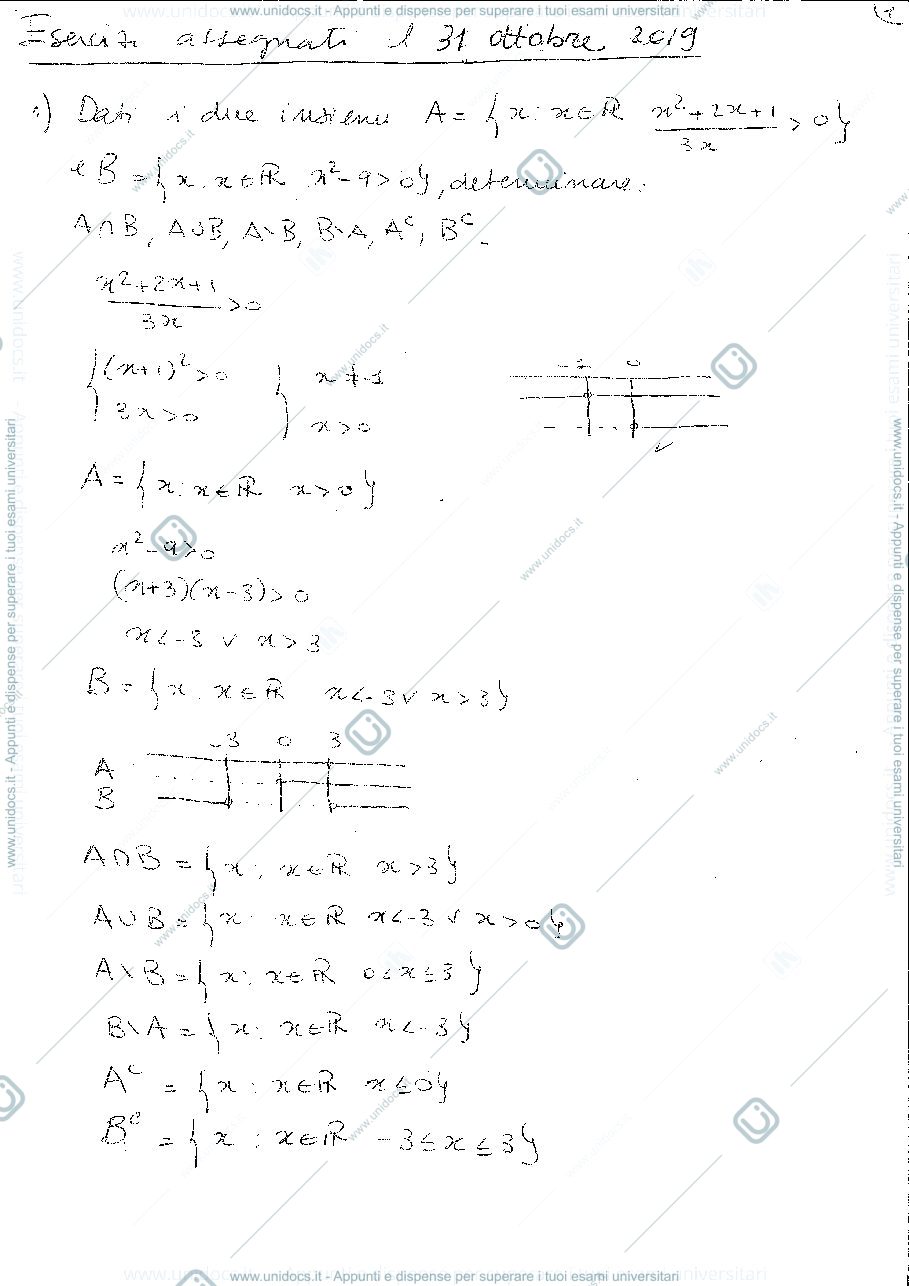 www.unidocs.it - Appunti e dispense per superare i tuoi esami universitari
Esercizi assegnati il 31 ottobre 2019
1) Dati i due insiemi A = {x: x∈ℝ (x²+2x+1)/3x > 0}
e B = {x: x∈ℝ x²-9>0}, determinare:
A∩B, A∪B, A\B, B\A, Aᶜ, Bᶜ.
(x²+2x+1)/3x > 0
{(x+1)²>0 { x≠-1
3x>0 x>0
-1 0
A = {x: x∈ℝ x>0}
x²-9>0
(x+3)(x-3)>0
x<-3 ∨ x>3
B = {x: x∈ℝ x<-3 ∨ x>3}
-3 0 3
A
B
A∩B = {x: x∈ℝ x>3}
A∪B = {x: x∈ℝ x<-3 ∨ x>0}
A\B = {x: x∈ℝ 0<x≤3}
B\A = {x: x∈ℝ x<-3}
Aᶜ = {x: x∈ℝ x≤0}
Bᶜ = {x: x∈ℝ -3≤x≤3}
www.unidocs.it - Appunti e dispense per superare i tuoi esami universitari